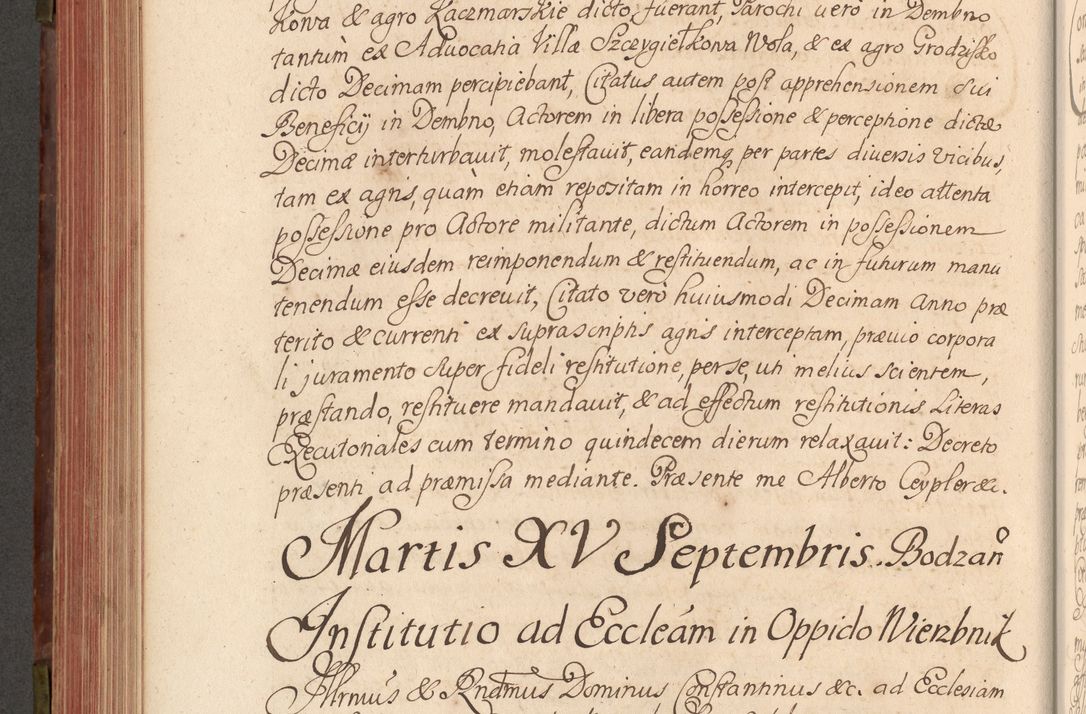 kowa & agro Kaczmarskie dicto, fuerant, Parochi verò in Dembno
tantùm ex Advocatia Villæ Szczygiełkowa Wola, & ex agro Grodzisko
dicto Decimam percipiebant, Citatus autem post apprehensionem sui
Beneficij in Dembno, Actorem in libera possessione & perceptione dictæ
Decimæ interturbavit, molestavit, eandemq; per partes diversis vicibus,
tam ex agris, quàm etiam repositam in horreo intercepit, ideo attenta
possessione pro Actore militante, dictum Actorem in possessionem
Decimæ eiusdem reimponendum & restituendum, ac in futurum manu
tenendum esse decrevit, Citato verò huiusmodi Decimam Anno præ
terito & currenti ex suprascriptis agris interceptam, prævio corpora
li juramento super fideli restitutione, per se, uti melius scientem,
præstando, restituere mandavit, & ad effectum restitutionis Literas
Execut̄oriales cum termino quindecem dierum relaxavit: Decreto
præsenti ad præmissa mediante. Præsente me Alberto Ceypler &c.
Martis XV Septembris. Bodzan
Institutio ad Eccleám in Oppido Wierzbnik
Illrmús & Rndm̄us Dominus Constantinus &c. ad Ecclesiam